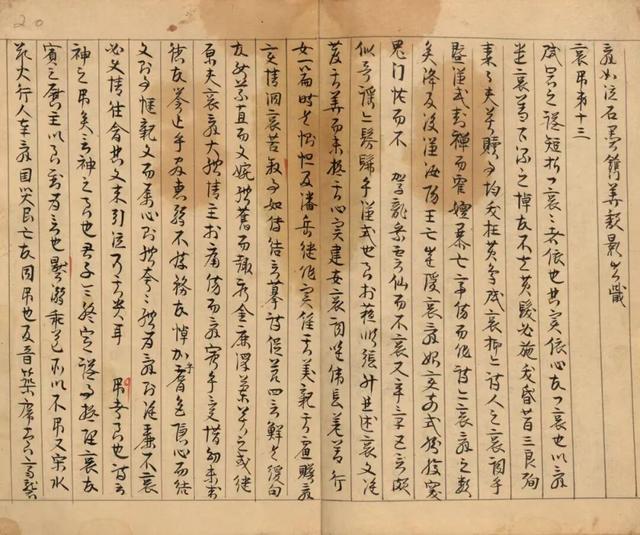 如泣石墨鐫華頹影豈忒
哀弔第十三
賦憲之謚短折曰哀者依也其實依心故曰哀也以辭
遣哀蓋不淚之悼故不在黃髮必施夭昏昔三良殉
秦百夫莫贖事均夭枉黃鳥賦哀抑亦詩人之哀詞乎
暨漢武封禪而霍嬗暴亡帝傷而作詩亦哀辭之類
矣降及後漢汝陽王亡崔瑗哀辭始變前式然履突
鬼門怪而不 駕龍乘雲仙而不哀又卒章五言頗
似哥謠亦髣髴乎漢武也至於蘇順張升並述哀文雖
發其華而未極其心實建安哀詞惟偉長差善行
女一篇時有惻怛及潘岳繼作實鍾其美觀其慮贍辭
變情洞哀苦敘事如傳結言摹詩促節四言鮮有緩句
故能義直而文婉體舊而趣新金鹿澤蘭莫之或繼
原夫哀辭大體情主於痛傷而辭窮乎愛惜幼未成
德故譽止乎察惠弱不勝務故悼加乎膚色隱心而結
文則事愜觀文而屬心則體奢奢體為辭則雖麗不哀
必使情往會悲文來引泣乃其貴耳 弔者至也詩云
神之弔矣言神之至也君子令終定謚事極理哀故
賓之慰主以至到為言也壓溺乖道所以不弔又宋水
鄭火行人奉辭國災民亡故同弔也及晉築虒臺齊襲